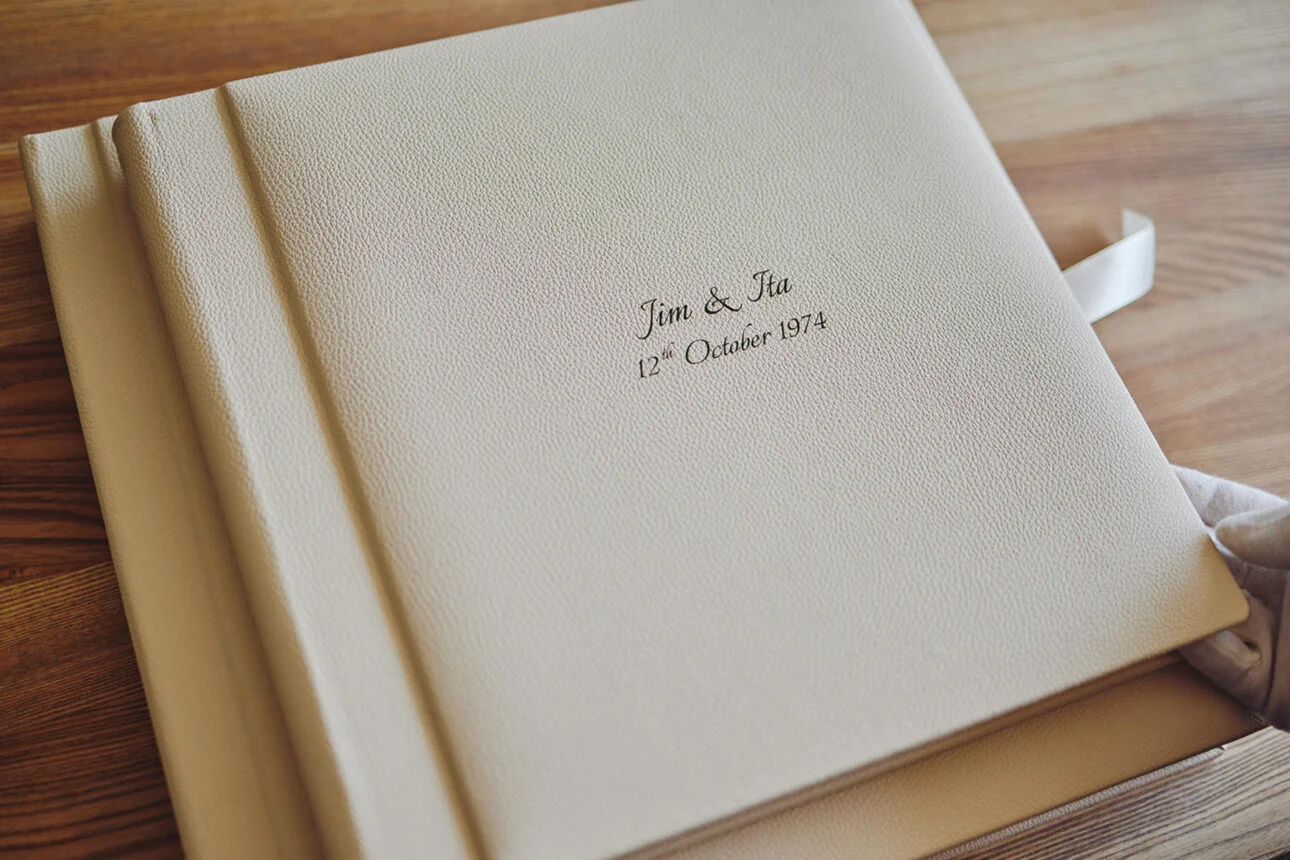 Jim & Ita
12th October 1974